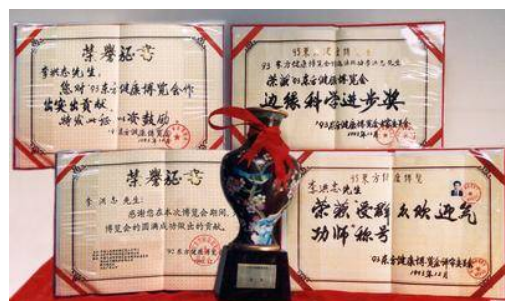 荣誉证书
李洪志先生:
您对'93东方健康博览会作
出突出贡献,
特发此证 以资鼓励
'93东方健康博览会
1993.12月
荣获'93东方健康博览会
边缘科学进步奖
1993年12月
荣誉证书
李洪志先生:
感谢您在本次博览会期间,
博览会的圆满成功做出的贡献。
'93东方健康博览会
'93东方健康博览
李洪志先生
荣获受群众欢迎气
功师称号
'93东方健康博览会评审委员会
1993年12月